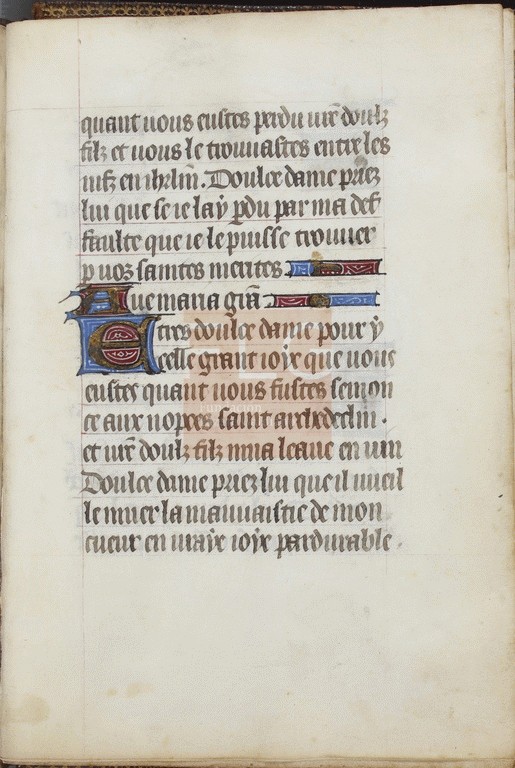 quant uous eustes perdu ur̃e doulz
filz et uous le trouuastes entre les
iuifz en ihrlm̃. Doulce dame priez
lui que se ie lay ꝑdu par ma def
faulte que ie le puisse trouuer
ꝑ uoz saintes merites
Aue maria gr̃a
E tres doulce dame pour y
celle grant ioye que uous
eustes quant uous fustes semon
ce aux nopces saint archedeclin .
et ur̃e doulz filz mua leaue en uin
Doulce dame priez lui que il ueil
le muer la mauuaistie de mon
cueur en uraye ioye pardurable .